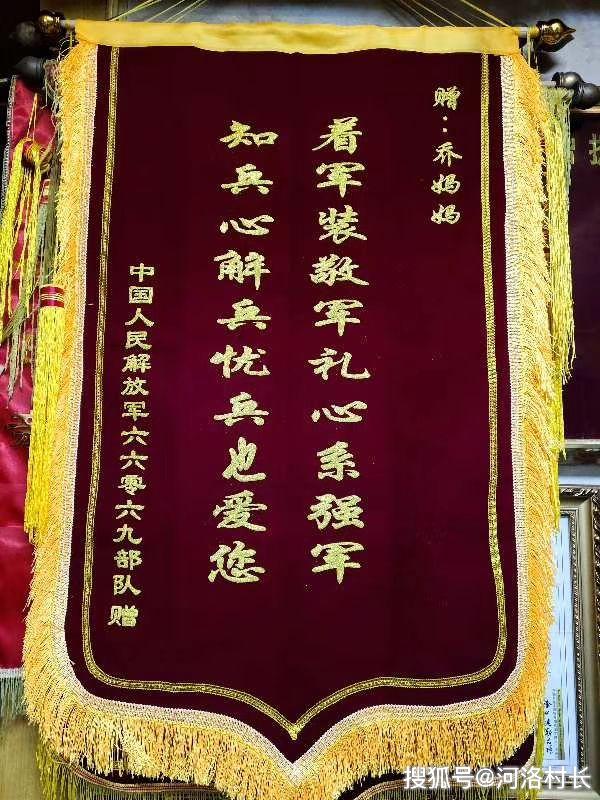 赠：乔妈妈
着军装敬军礼心系强军
知兵心解兵忧兵也爱您
中国人民解放军六六零六九部队赠
搜狐号@河洛村长